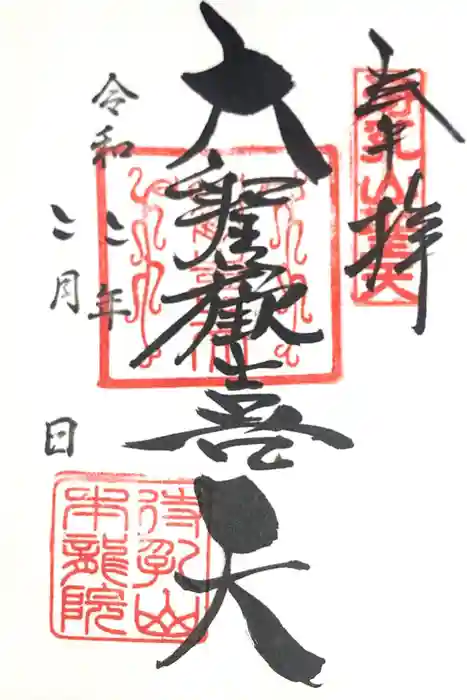 奉拝
大聖歓喜天
令和二年
二月
日
待乳山
本龍院